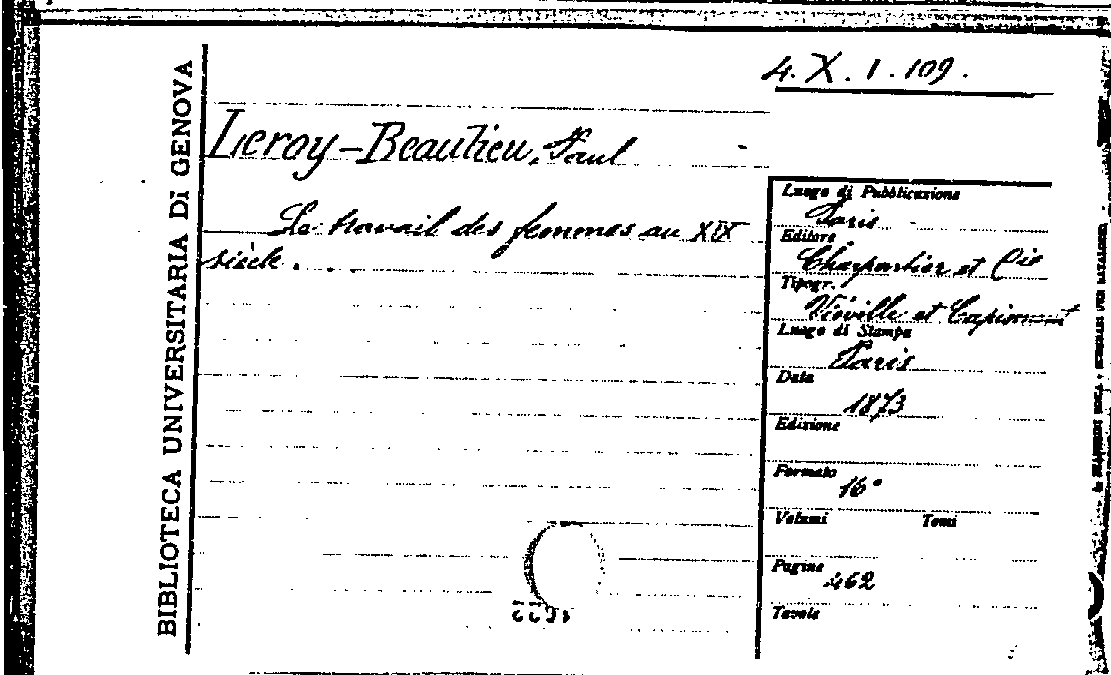 4. X. 1. 109.
BIBLIOTECA UNIVERSITARIA DI GENOVA
Leroy-Beaulieu, Paul
Le travail des femmes au XIX
siècle.
Luogo di Pubblicazione
Paris
Editore
Charpentier et Cie
Tipogr.
Viéville et Capiomont
Luogo di Stampa
Paris
Data
1873
Edizione
Formato
16°
Volumi Tomi
Pagine
462
Tavole